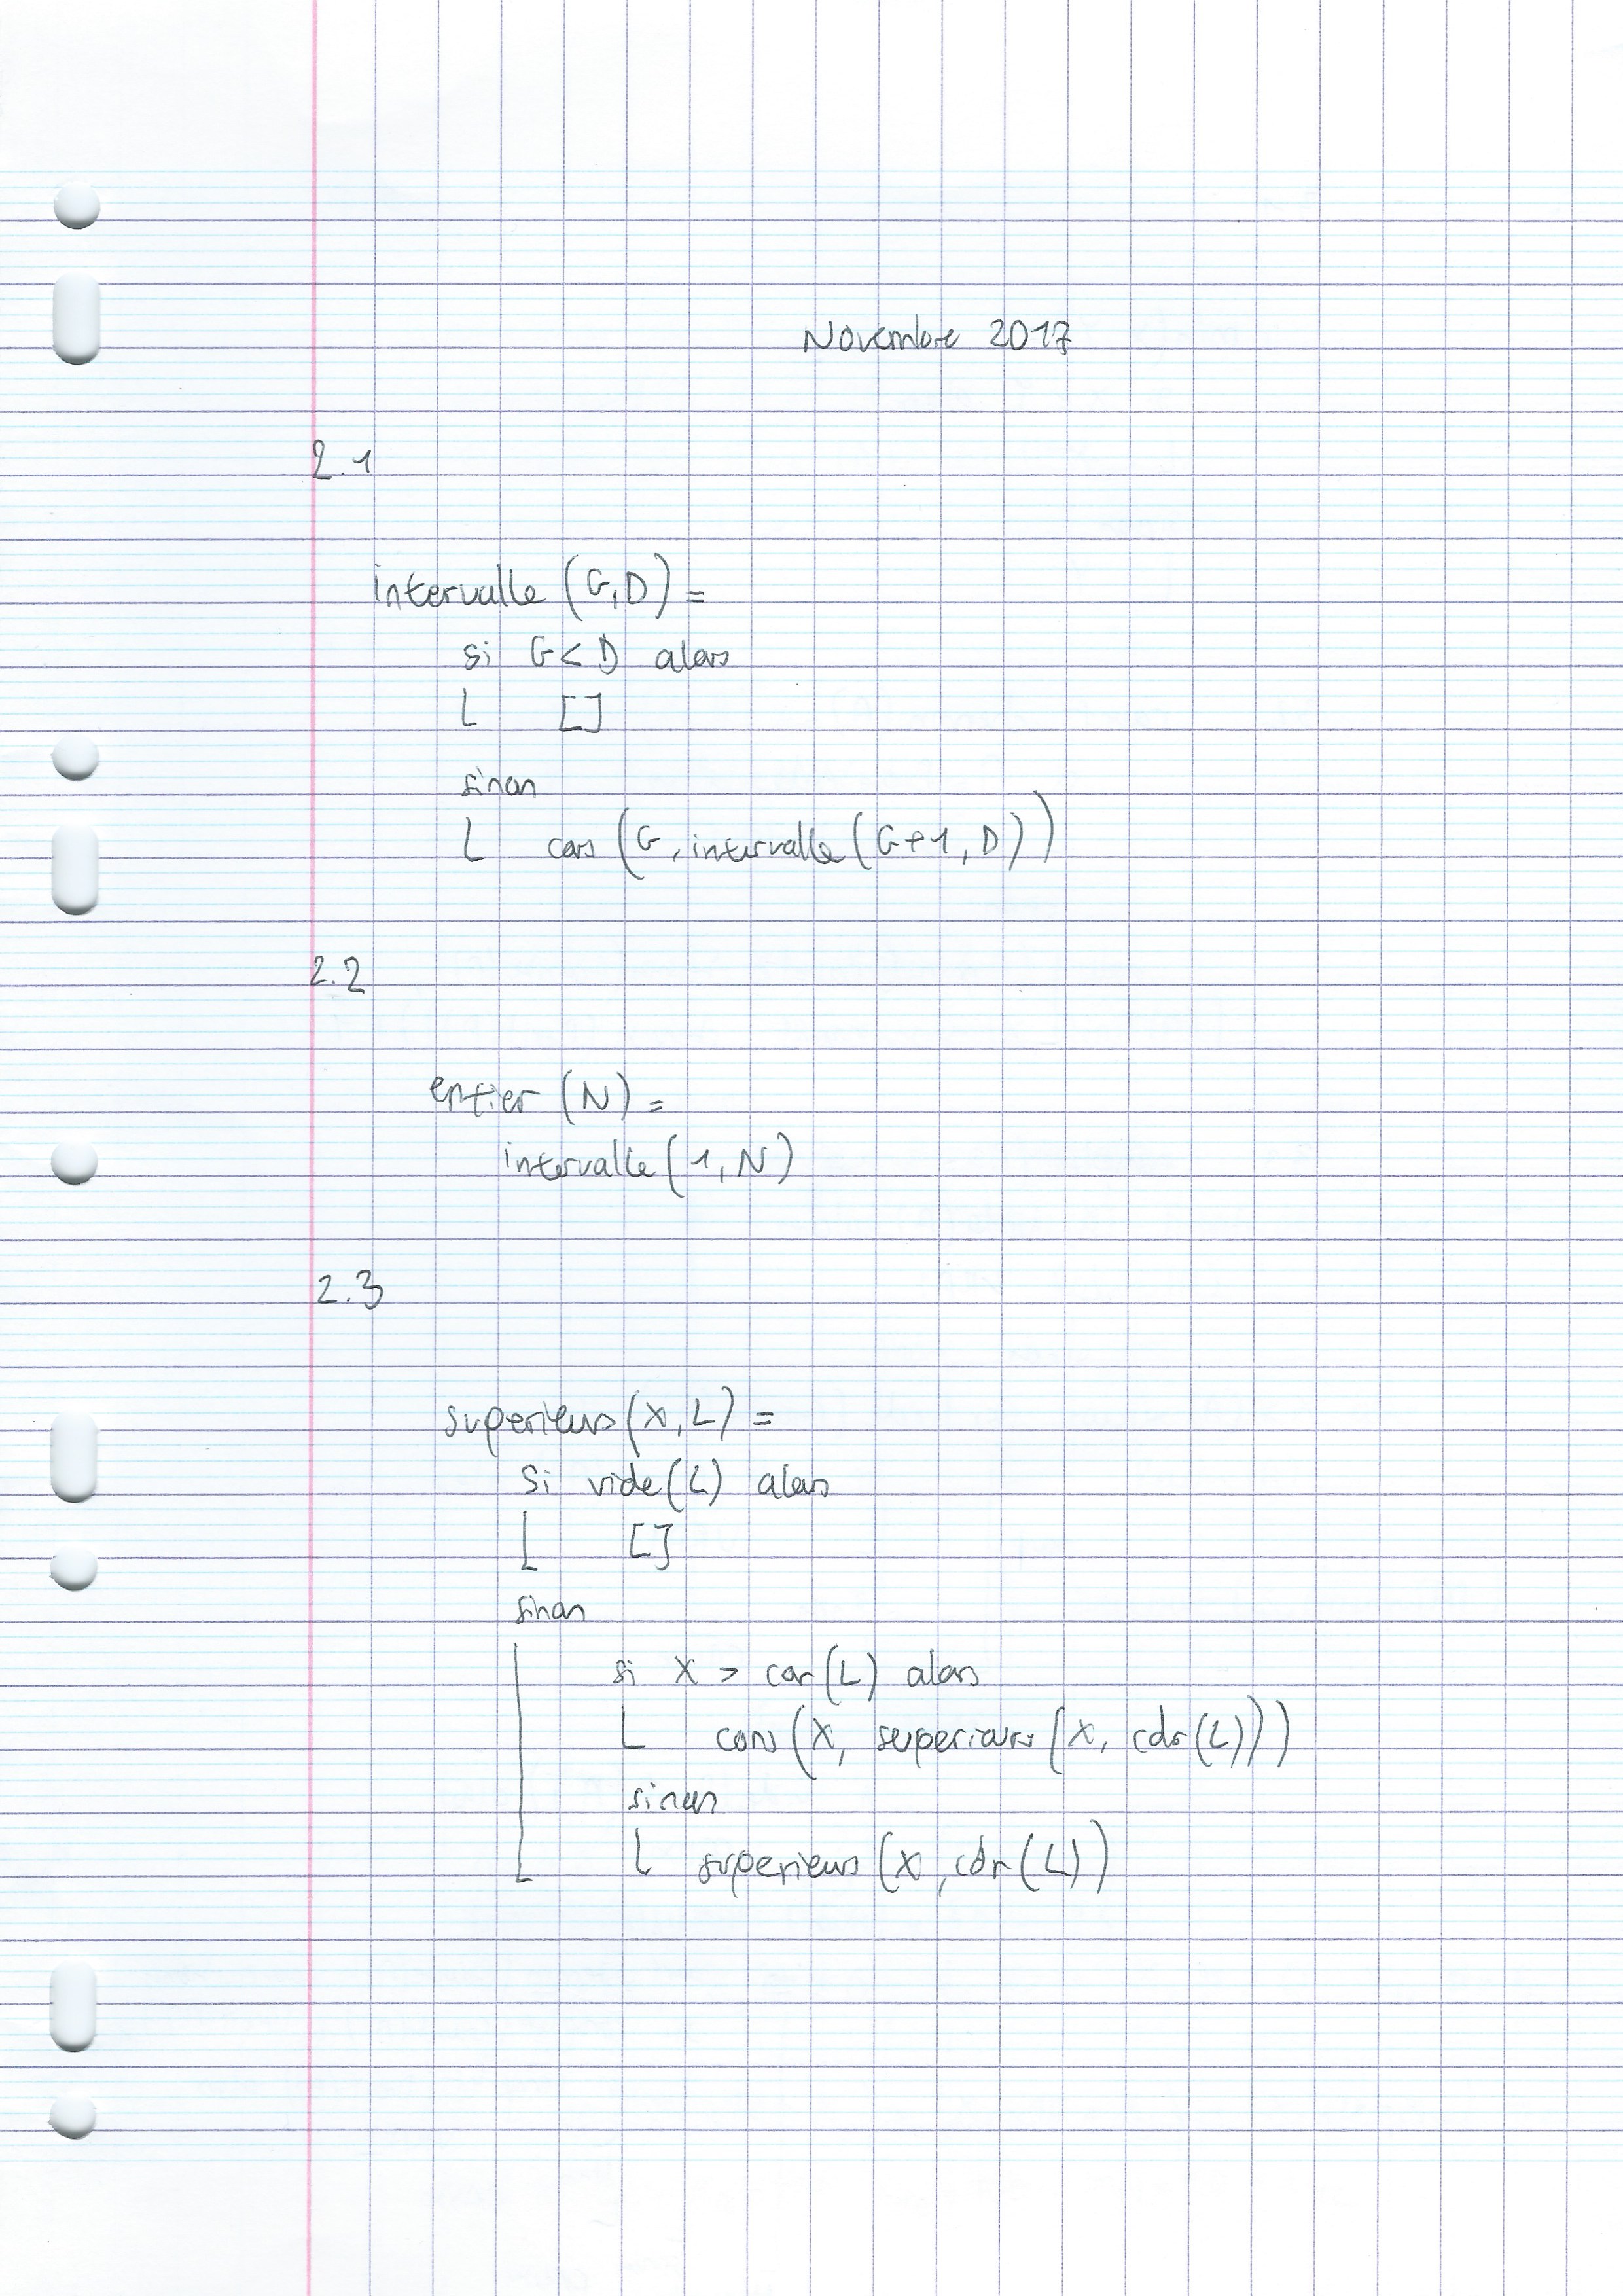 Novembre 2017
2.1
intervalle (G,D) =
si G < D alors
[]
sinon
cons (G, intervalle (G+1, D))
2.2
entier (N) =
intervalle (1, N)
2.3
superieurs (X, L) =
si vide (L) alors
[]
sinon
si X > car (L) alors
cons (X, superieurs (X, cdr (L)))
sinon
superieurs (X, cdr (L))